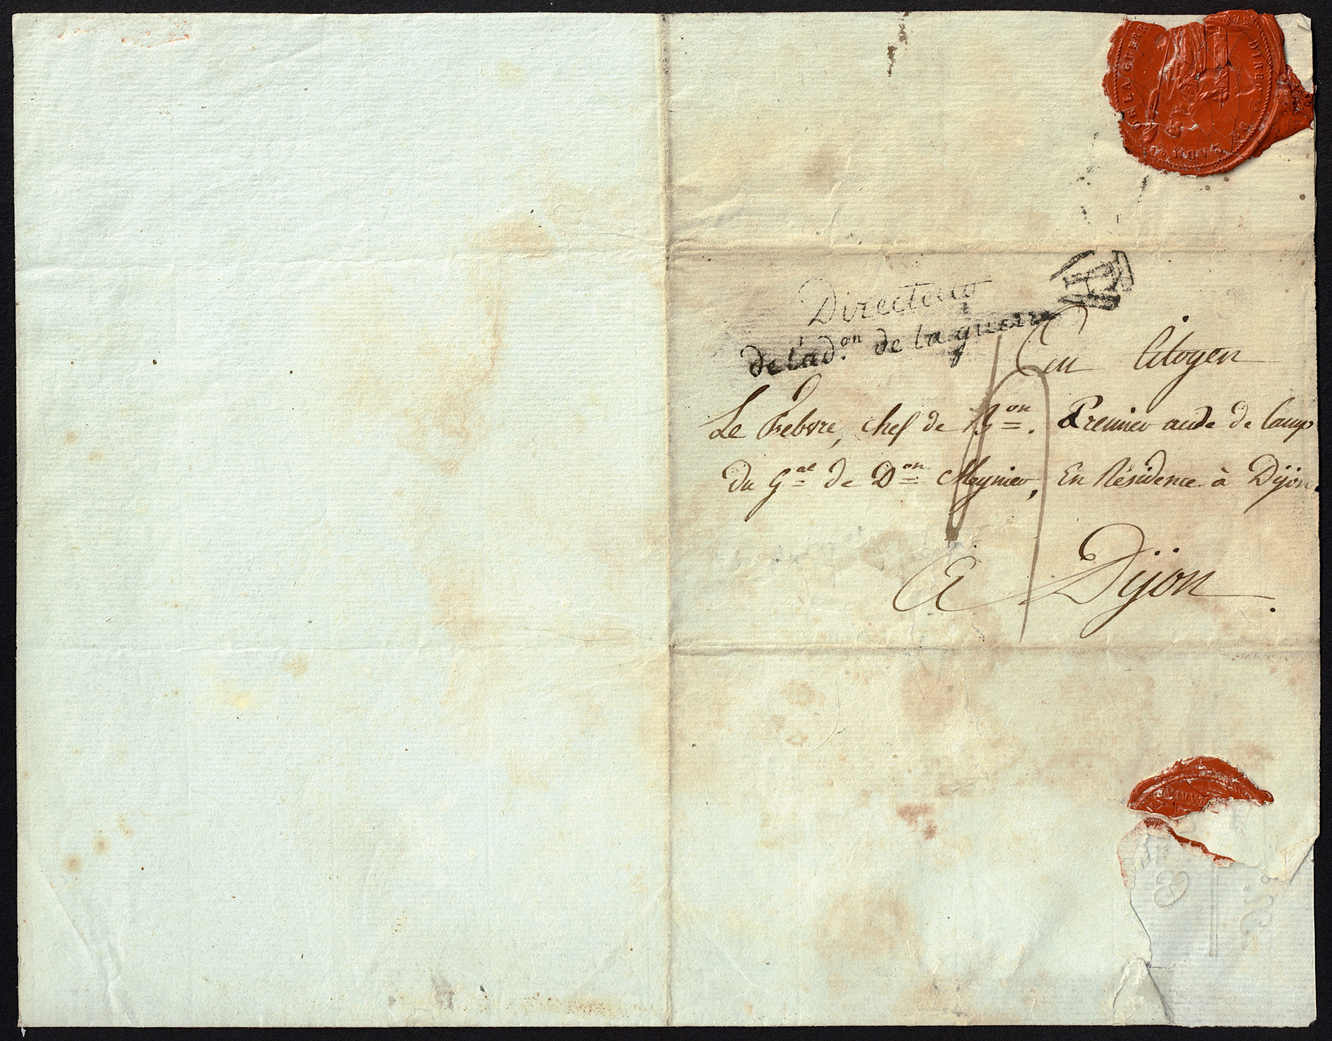 Directeur
de l'ad.on de la guerre
Au Citoyen
Le Febvre, chef de B.on. Premier aide de Camp
du G.al de D.on Meynier, En Résidence à Dijon
À Dijon.